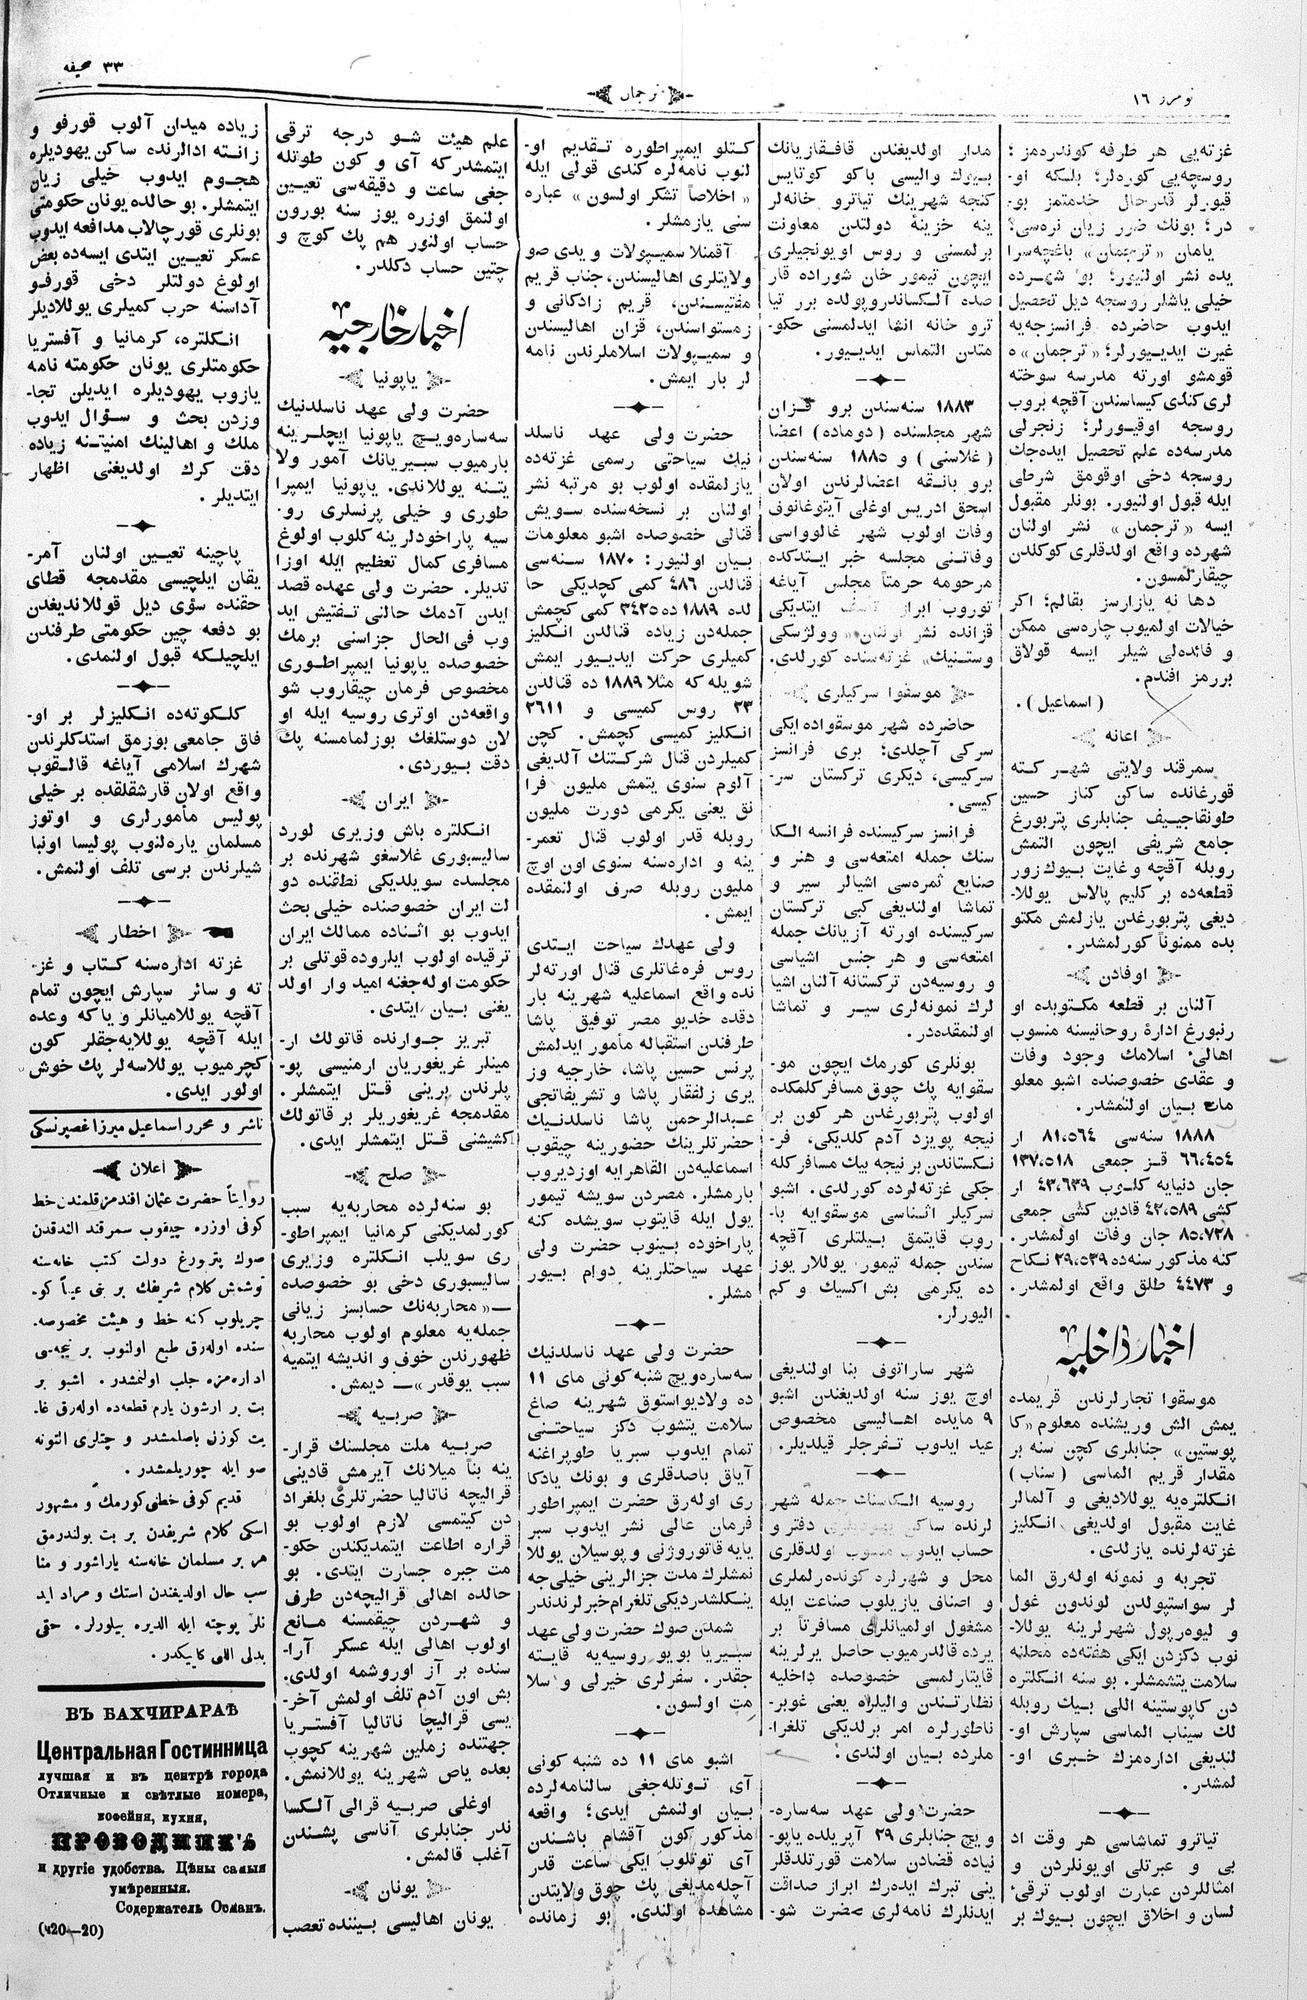 نومرو ١٦
ترجمان
٣٣ صحیفه
غزته‌یی هر طرفه كوندره‌مز؛
روسچه‌یی كوره‌لر؛ بلكه او-
قیورلر قدرحال خدمتمز بو-
در؛ بونك ضرر زیان نره‌سی؟
یامان «ترجمان» باغچه‌سرا
یده نشر اولنیور؛ بو شهرده
خیلی یاشلر روسجه دیل تحصیل
ایدوب حاضرده فرانسزجه‌یه
غیرت ایدییورلر؛ «ترجمان» ه
قومشو اورته مدرسه سوخته
لری كندی كیساسندن آقچه بروب
روسجه اوقیورلر؛ زنجرلی
مدرسه‌ده علم تحصیل ایده‌جك
روسجه دخی اوقومق شرطی
ایله قبول اولنیور. بونلر مقبول
ایسه «ترجمان» نشر اولنان
شهرده واقع اولدقلری كوكلدن
چیقارلمسون.
دها نه یازارسز بقالم؛ اكر
خیالات اولمیوب چاره‌سی ممكن
و فائده‌لی شیلر ایسه قولاق
بررمز افندم.
(اسماعیل).
اعانه
سمرقند ولایتی شهر كته
قورغانده ساكن كناز حسین
طونقاجییف جنابلری پتربورغ
جامع شریفی ایچون التمش
روبله آقچه و غایت بیوك زور
قطعه‌ده بر كلیم پالاس یوللا-
دیغی پتربورغدن یازلمش مكتو
بده ممنوناً كورلمشدر.
اوفادن
آلنان بر قطعه مكتوبده او
رنبورغ ادارۀ روحانیسنه منسوب
اهالیٴ اسلامك وجود وفات
و عقدی خصوصنده اشبو معلو
مات بیان اولنمشدر.
١٨٨٨ سنه‌سی ٨١،٥٦٤ ار
٦٦،٤٥٤ قز جمعی ١٣٧،٥١٨
جان دنیایه كلوب ٤٣،٦٣٩ ار
كشی ٤٢،٥٨٩ قادین كشی جمعی
٨٥،٧٢٨ جان وفات اولمشدر.
كنه مذكور سنه‌ده ٢٩،٥٣٩ نكاح
و ٤٤٧٣ طلق واقع اولمشدر.
اخبار داخلیه
موسقوا تجارلرندن قریمده
یمش الش وریشنده معلوم «كا
پوستین» جنابلری كچن سنه بر
مقدار قریم الماسی (سناب)
انكلتره‌یه یوللادیغی و آلمالر
غایت مقبول اولدیغی انكلیز
غزته‌لرنده یازلدی.
تجربه و نمونه اوله‌رق الما
لر سواستپولدن لوندون غول
و لیوه‌رپول شهرلرینه یوللا-
نوب دكزدن ایكی هفته‌ده محلنه
سلامت یتشمشلر. بو سنه انكلتره
دن كاپوستینه اللی بیك روبله
لك سیناب الماسی سپارش او-
لندیغی اداره‌مزك خبری او-
لمشدر.
تیاترو تماشاسی هر وقت اد
بی و عبرتلی اویونلردن و
امثاللردن عبارت اولوب ترقیٴ
لسان و اخلاق ایچون بیوك بر
مدار اولدیغندن قافقازیانك
بیوك والیسی باكو كوتایس
كنجه شهرینك تیاترو خانه‌لر
ینه خزینۀ دولتدن معاونت
برلمسنی و روس اویونجیلری
ایچون تیمور خان شوراده قار
صده آلكساندروپولده برر تیا
ترو خانه انشا ایدلمسنی حكو-
متدن التماس ایدییور.
١٨٨٣ سنه‌سندن برو قزان
شهر مجلسنده (دوماده) اعضا
(غلاسنی) و ١٨٨٥ سنه‌سندن
برو بانقه اعضالرندن اولان
اسحق ادریس اوغلی آیتوغانوف
وفات اولوب شهر غالوواسی
وفاتنی مجلسه خبر ایتدكده
مرحومه حرمتاً مجلس آیاغه
توروب ابراز تاسف ایتدیكی
قزانده نشر اولنان «وولژسكی
وستنیك» غزته‌سنده كورلدی.
موسقوا سركیلری
حاضرده شهر موسقواده ایكی
سركی آچلدی؛ بری فرانسز
سركیسی، دیكری تركستان سر-
كیسی.
فرانسز سركیسنده فرانسه الكا
سنك جمله امتعه‌سی و هنر و
صنایع ثمره‌سی اشیالر سیر و
تماشا اولندیغی كبی تركستان
سركیسنده اورته آزیانك جمله
امتعه‌سی و هر جنس اشیاسی
و روسیه‌دن تركستانه آلنان اشیا
لرك نمونه‌لری سیر و تماشا
اولنمقده‌در.
بونلری كورمك ایچون مو-
سقوایه پك چوق مسافر كلمكده
اولوب پتربورغدن هر كون بر
نیجه پویزد آدم كلدیكی، فر-
نكستاندن بر نیجه بیك مسافر كله
جكی غزته‌لرده كورلدی. اشبو
سركیلر اثناسی موسقوایه با-
روب قایتمق بیلتلری آقچه
سندن جمله تیمور یوللار یوز
ده یكرمی بش اكسیك و كم
الیورلر.
شهر ساراتوف بنا اولندیغی
اوچ یوز سنه اولدیغندن اشبو
٩ مایده اهالیسی مخصوص
عید ایدوب تفرجلر قیلدیلر.
روسیه الكاسنك جمله شهر
لرنده ساكن یهودیلری دفتر و
حساب ایدوب منسوب اولدقلری
محل و شهرلره كوندرلملری
و اصناف یازیلوب صناعت ایله
مشغول اولمیانلری مسافرتاً بر
یرده قالدرمیوب حاصل یرلرینه
قایتارلمسی خصوصده داخلیه
نظارتندن والیلره یعنی غوبر-
ناطورلره امر برلدیكی تلغرا-
ملرده بیان اولندی.
حضرت ولی عهد سه‌ساره-
ویچ جنابلری ٢٩ آپریلده یاپو-
نیاده قضادن سلامت قورتلدقلر
ینی تبرك ایده‌رك ابراز صداقت
ایدنلرك نامه‌لری حضرت شو-
كتلو ایمپراطوره تقدیم او-
لنوب نامه‌لره كندی قولی ایله
«اخلاصاً تشكر اولسون» عباره
سنی یازمشلر.
آقمنلا سمیپولات و یدی صو
ولایتلری اهالیسندن، جناب قریم
مفتیسندن، قریم زادكانی و
زمستواسندن، قزان اهالیسندن
و سمیپولات اسلاملرندن نامه
لر بار ایمش.
حضرت ولی عهد ناسلد
نیك سیاحتی رسمی غزته‌ده
یازلمقده اولوب بو مرتبه نشر
اولنان بر نسخه‌سنده سویش
قنالی خصوصده اشبو معلومات
بیان اولنیور: ١٨٧٠ سنه‌سی
قنالدن ٤٨٦ كمی كچدیكی حا
لده ١٨٨٩ ده ٣٤٢٥ كمی كچمش
جمله‌دن زیاده قنالدن انكلیز
كمیلری حركت ایدییور ایمش
شویله كه مثلا ١٨٨٩ ده قنالدن
٢٣ روس كمیسی و ٢٦١١
انكلیز كمیسی كچمش. كچن
كمیلردن قنال شركتنك آلدیغی
آلوم سنوی یتمش ملیون فرا
نق یعنی یكرمی دورت ملیون
روبله قدر اولوب قنال تعمر-
ینه و اداره‌سنه سنوی اون اوچ
ملیون روبله صرف اولنمقده
ایمش.
ولی عهدك سیاحت ایتدی
روس فره‌غاتلری قنال اورته‌لر
نده واقع اسماعلیه شهرینه بار
دقده خدیو مصر توفیق پاشا
طرفندن استقباله مأمور ایدلمش
پرنس حسین پاشا، خارجیه وز
یری زلفقار پاشا و تشریفاتجی
عبدالرحمن پاشا ناسلدنیك
حضرتلرینك حضورینه چیقوب
اسماعلیه‌دن القاهرایه اوزدیروب
بارمشلر. مصردن سویشه تیمور
یول ایله قایتوب سویشده كنه
پاراخوده بینوب حضرت ولی
عهد سیاحتلرینه دوام بیور
مشلر.
حضرت ولی عهد ناسلدنیك
سه‌ساره‌ویچ شنبه كونی مای ١١
ده ولادیواستوق شهرینه صاغ
سلامت یتشوب دكز سیاحتنی
تمام ایدوب سبریا طوپراغنه
آیاق باصدقلری و بونك یادكا
ری اوله‌رق حضرت ایمپراطور
فرمان عالی نشر ایدوب سبر
یایه قاتوروژنی و پوسیلان یوللا
نمشلرك مدت جزالرینی خیلی جه
ینكلشدردیكی تلغرام خبرلرندندر
شمدن صوك حضرت ولی عهد
سبیریا بویو روسیه‌یه قایته
جقدر. سفرلری خیرلی و سلا
مت اولسون.
اشبو مای ١١ ده شنبه كونی
آی توتله‌جغی سالنامه‌لرده
بیان اولنمش ایدی؛ واقعه
مذكور كون آقشام باشندن
آی توتلوب ایكی ساعت قدر
آچله‌مدیغی پك چوق ولایتدن
مشاهده اولندی. بو زمانده
علم هیئت شو درجه ترقی
ایتمشدر كه آی و كون طوتله
جغی ساعت و دقیقه‌سی تعیین
اولنمق اوزره یوز سنه بورون
حساب اولنور هم پك كوچ و
چتین حساب دكلدر.
اخبار خارجیه
یاپونیا
حضرت ولی عهد ناسلدنیك
سه‌ساره‌ویچ یاپونیا ایچلرینه
بارمیوب سبیریانك آمور ولا
یتنه یوللاندی. یاپونیا ایمپرا
طوری و خیلی پرنسلری رو-
سیه پاراخودلرینه كلوب اولوغ
مسافری كمال تعظیم ایله اوزا
تدیلر. حضرت ولی عهده قصد
ایدن آدمك حالنی تفتیش اید
وب فی الحال جزاسنی برمك
خصوصده یاپونیا ایمپراطوری
مخصوص فرمان چیقاروب شو
واقعه‌دن اوتری روسیه ایله او
لان دوستلغك بوزلمامسنه پك
دقت بیوردی.
ایران
انكلتره باش وزیری لورد
سالیسبوری غلاسغو شهرنده بر
مجلسده سویلدیكی نطقنده دو
لت ایران خصوصنده خیلی بحث
ایدوب بو اثناده ممالك ایران
ترقیده اولوب ایلروده قوتلی بر
حكومت اوله‌جغنه امید وار اولد
یغنی بیان ایتدی.
تبریز جوارنده قاتولك ار-
مینلر غریغوریان ارمنیسی پو-
پلرندن برینی قتل ایتمشلر.
مقدمجه غریغوریلر بر قاتولك
كشیشنی قتل ایتمشلر ایدی.
صلح
بو سنه‌لرده محاربه‌یه سبب
كورلمدیكنی كرمانیا ایمپراطو-
ری سویلب انكلتره وزیری
سالیسبوری دخی بو خصوصده
—«محاربه‌نك حسابسز زیانی
جمله‌یه معلوم اولوب محاربه
ظهورندن خوف و اندیشه ایتمیه
سبب یوقدر»— دیمش.
صربیه
صربیه ملت مجلسنك قرار-
ینه بناً میلانك آیرمش قادینی
قرالیچه ناتالیا حضرتلری بلغراد
دن كیتمسی لازم اولوب بو
قراره اطاعت ایتمدیكندن حكو-
مت جبره جسارت ایتدی. بو
حالده اهالی قرالیچه‌دن طرف
و شهردن چیقمسنه مانع
اولوب اهالی ایله عسكر آرا-
سنده بر آز اوروشمه اولدی.
بش اون آدم تلف اولمش آخر-
یسی قرالیچا ناتالیا آفستریا
جهتنده زملین شهرینه كچوب
بعده یاص شهرینه یوللانمش.
اوغلی صربیه قرالی آلكسا
ندر جنابلری آناسی پشندن
آغلب قالمش.
یونان
یونان اهالیسی بیننده تعصب
زیاده میدان آلوب قورفو و
زانته ادالرنده ساكن یهودیلره
هجوم ایدوب خیلی زیان
ایتمشلر. بو حالده یونان حكومتی
بونلری قورچالاب مدافعه ایدوب
عسكر تعیین ایتدی ایسه‌ده بعض
اولوغ دولتلر دخی قورفو
آداسنه حرب كمیلری یوللادیلر
انكلتره، كرمانیا و آفستریا
حكومتلری یونان حكومته نامه
یازوب یهودیلره ایدیلن تجا-
وزدن بحث و سؤال ایدوب
ملك و اهالینك امنیتنه زیاده
دقت كرك اولدیغنی اظهار
ایتدیلر.
پاچینه تعیین اولنان آمر-
یقان ایلچیسی مقدمجه قطای
حقنده سؤی دیل قوللاندیغندن
بو دفعه چین حكومتی طرفندن
ایلچیلكه قبول اولنمدی.
كلكوته‌ده انكلیزلر بر او-
فاق جامعی بوزمق استدكلرندن
شهرك اسلامی آیاغه قالقوب
واقع اولان قارشقلقده بر خیلی
پولیس مأمورلری و اوتوز
مسلمان یاره‌لنوب پولیسا اونبا
شیلرندن برسی تلف اولنمش.
اخطار
غزته اداره‌سنه كتاب و غز-
ته و سائر سپارش ایچون تمام
آقچه یوللامیانلر و یا كه وعده
ایله آقچه یوللایه‌جقلر كون
كچرمیوب یوللاسه‌لر پك خوش
اولور ایدی.
ناشر و محرر اسماعیل میرزا غصپرنسكی
اعلان
روایتاً حضرت عثمان افندمز قلمندن خط
كوفی اوزره چیقوب سمرقند الندقدن
صوك پتربورغ دولت كتب خانه‌سنه
توشمش كلام شریفك بر بتی عیناً كو-
چریلوب كنه خط و هیئت مخصوصه-
سنده اوله‌رق طبع اولنوب بر نیجه‌سی
اداره‌مزه جلب اولنمشدر. اشبو بر
بت بر ارشون یارم قطعه‌ده اوله‌رق غا-
یت كوزل باصلمشدر و چتلری التونه
صو ایله چوریلمشدر.
قدیم كوفی خطنی كورمك و مشهور
اسكی كلام شریفدن بر بت بولندرمق
هر بر مسلمان خانه‌سنه یاراشور و منا
سب حال اولدیغندن استك و مراد اید
نلر پوچته ایله الدیره بیلورلر. حقی
بدلی اللی كاپیكدر.
ВЪ БАХЧИРАРАѢ
Центральная Гостинница
лучшая и въ центрѣ города
Отличные и свѣтлые номера,
кофейня, кухня,
ПРОВОДНИК'Ѣ
и другіе удобства. Цѣны самыя
умѣренныя.
Содержатель Османъ.
(ч20—20)